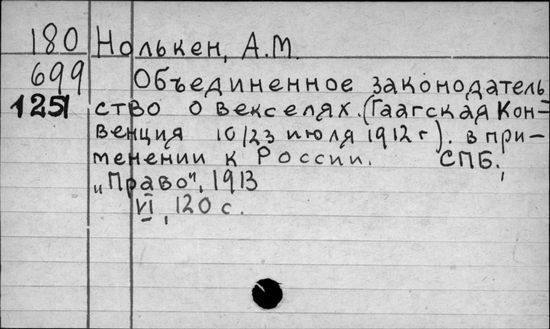 180 Нолькен, А.М.
699 Объединенное законодатель
1251 ство о векселях. (Гаагская Кон=
венция 10/23 июля 1912 г). в при-
менении к России. СПБ.,
"Право", 1913
VI, 120 с.